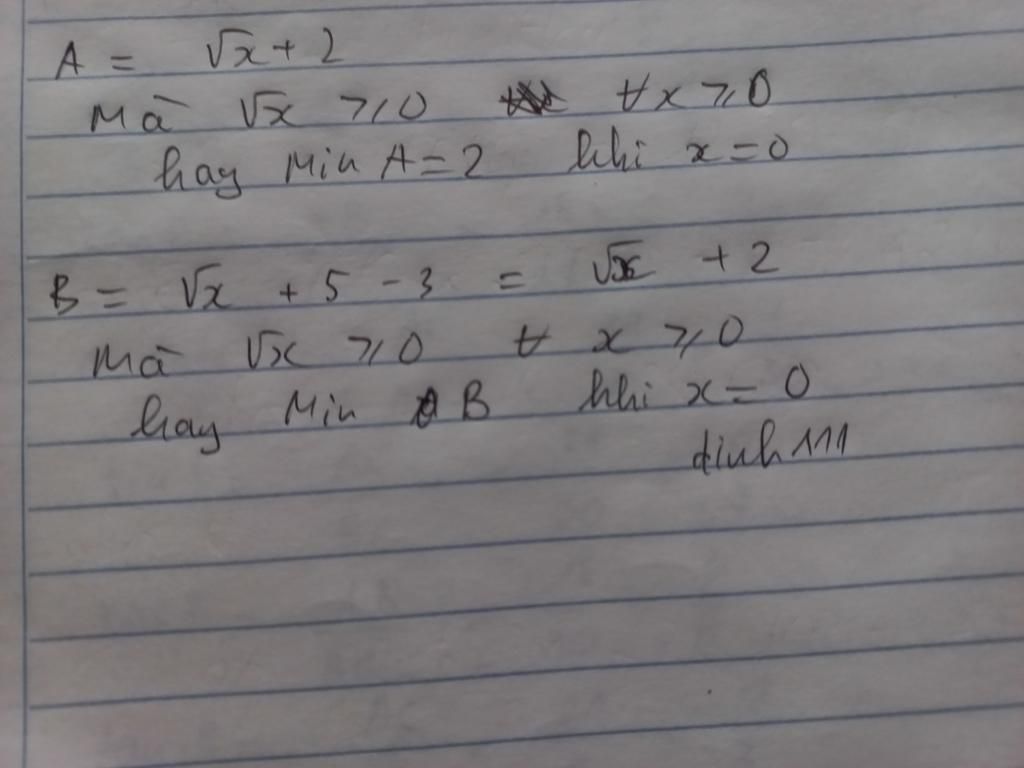 A = √x + 2
Mà √x ⩾ 0 ∀x ⩾ 0
hay Min A = 2 khi x = 0
B = √x + 5 - 3 = √x + 2
Mà √x ⩾ 0 ∀ x ⩾ 0
hay Min B khi x = 0
dinh111